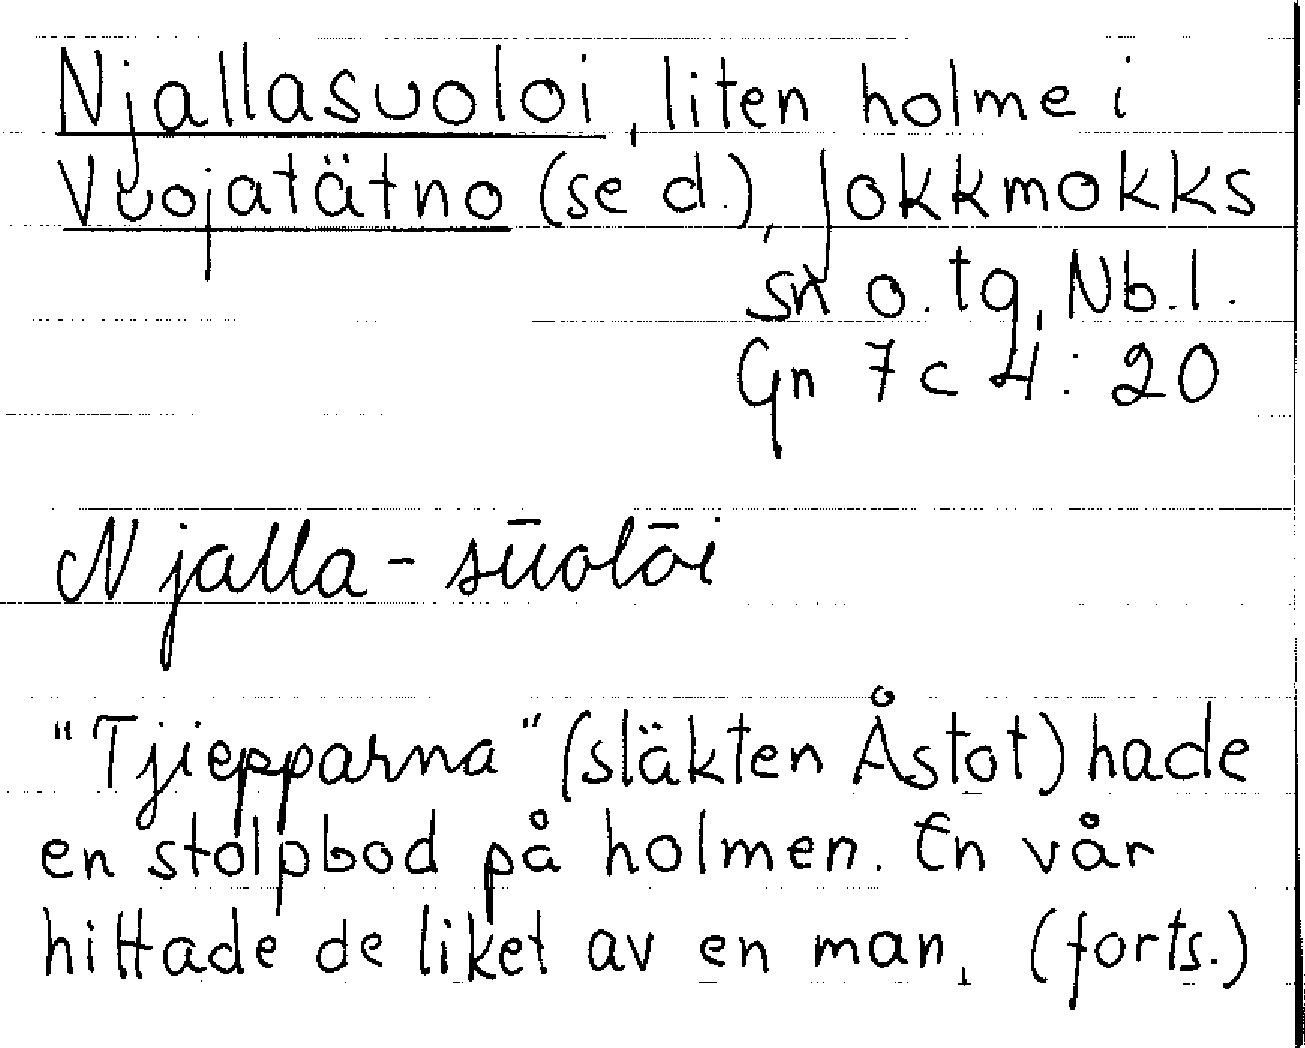 Njallasuoloi, liten holme i
Vuojatätno (se d.), Jokkmokks
sn o. tg, Nb.l.
Gn 7c 4:20
Njalla-sūolōi
"Tjiepparna" (släkten Åstot) hade
en stolpbod på holmen. En vår
hittade de liket av en man, (forts.)